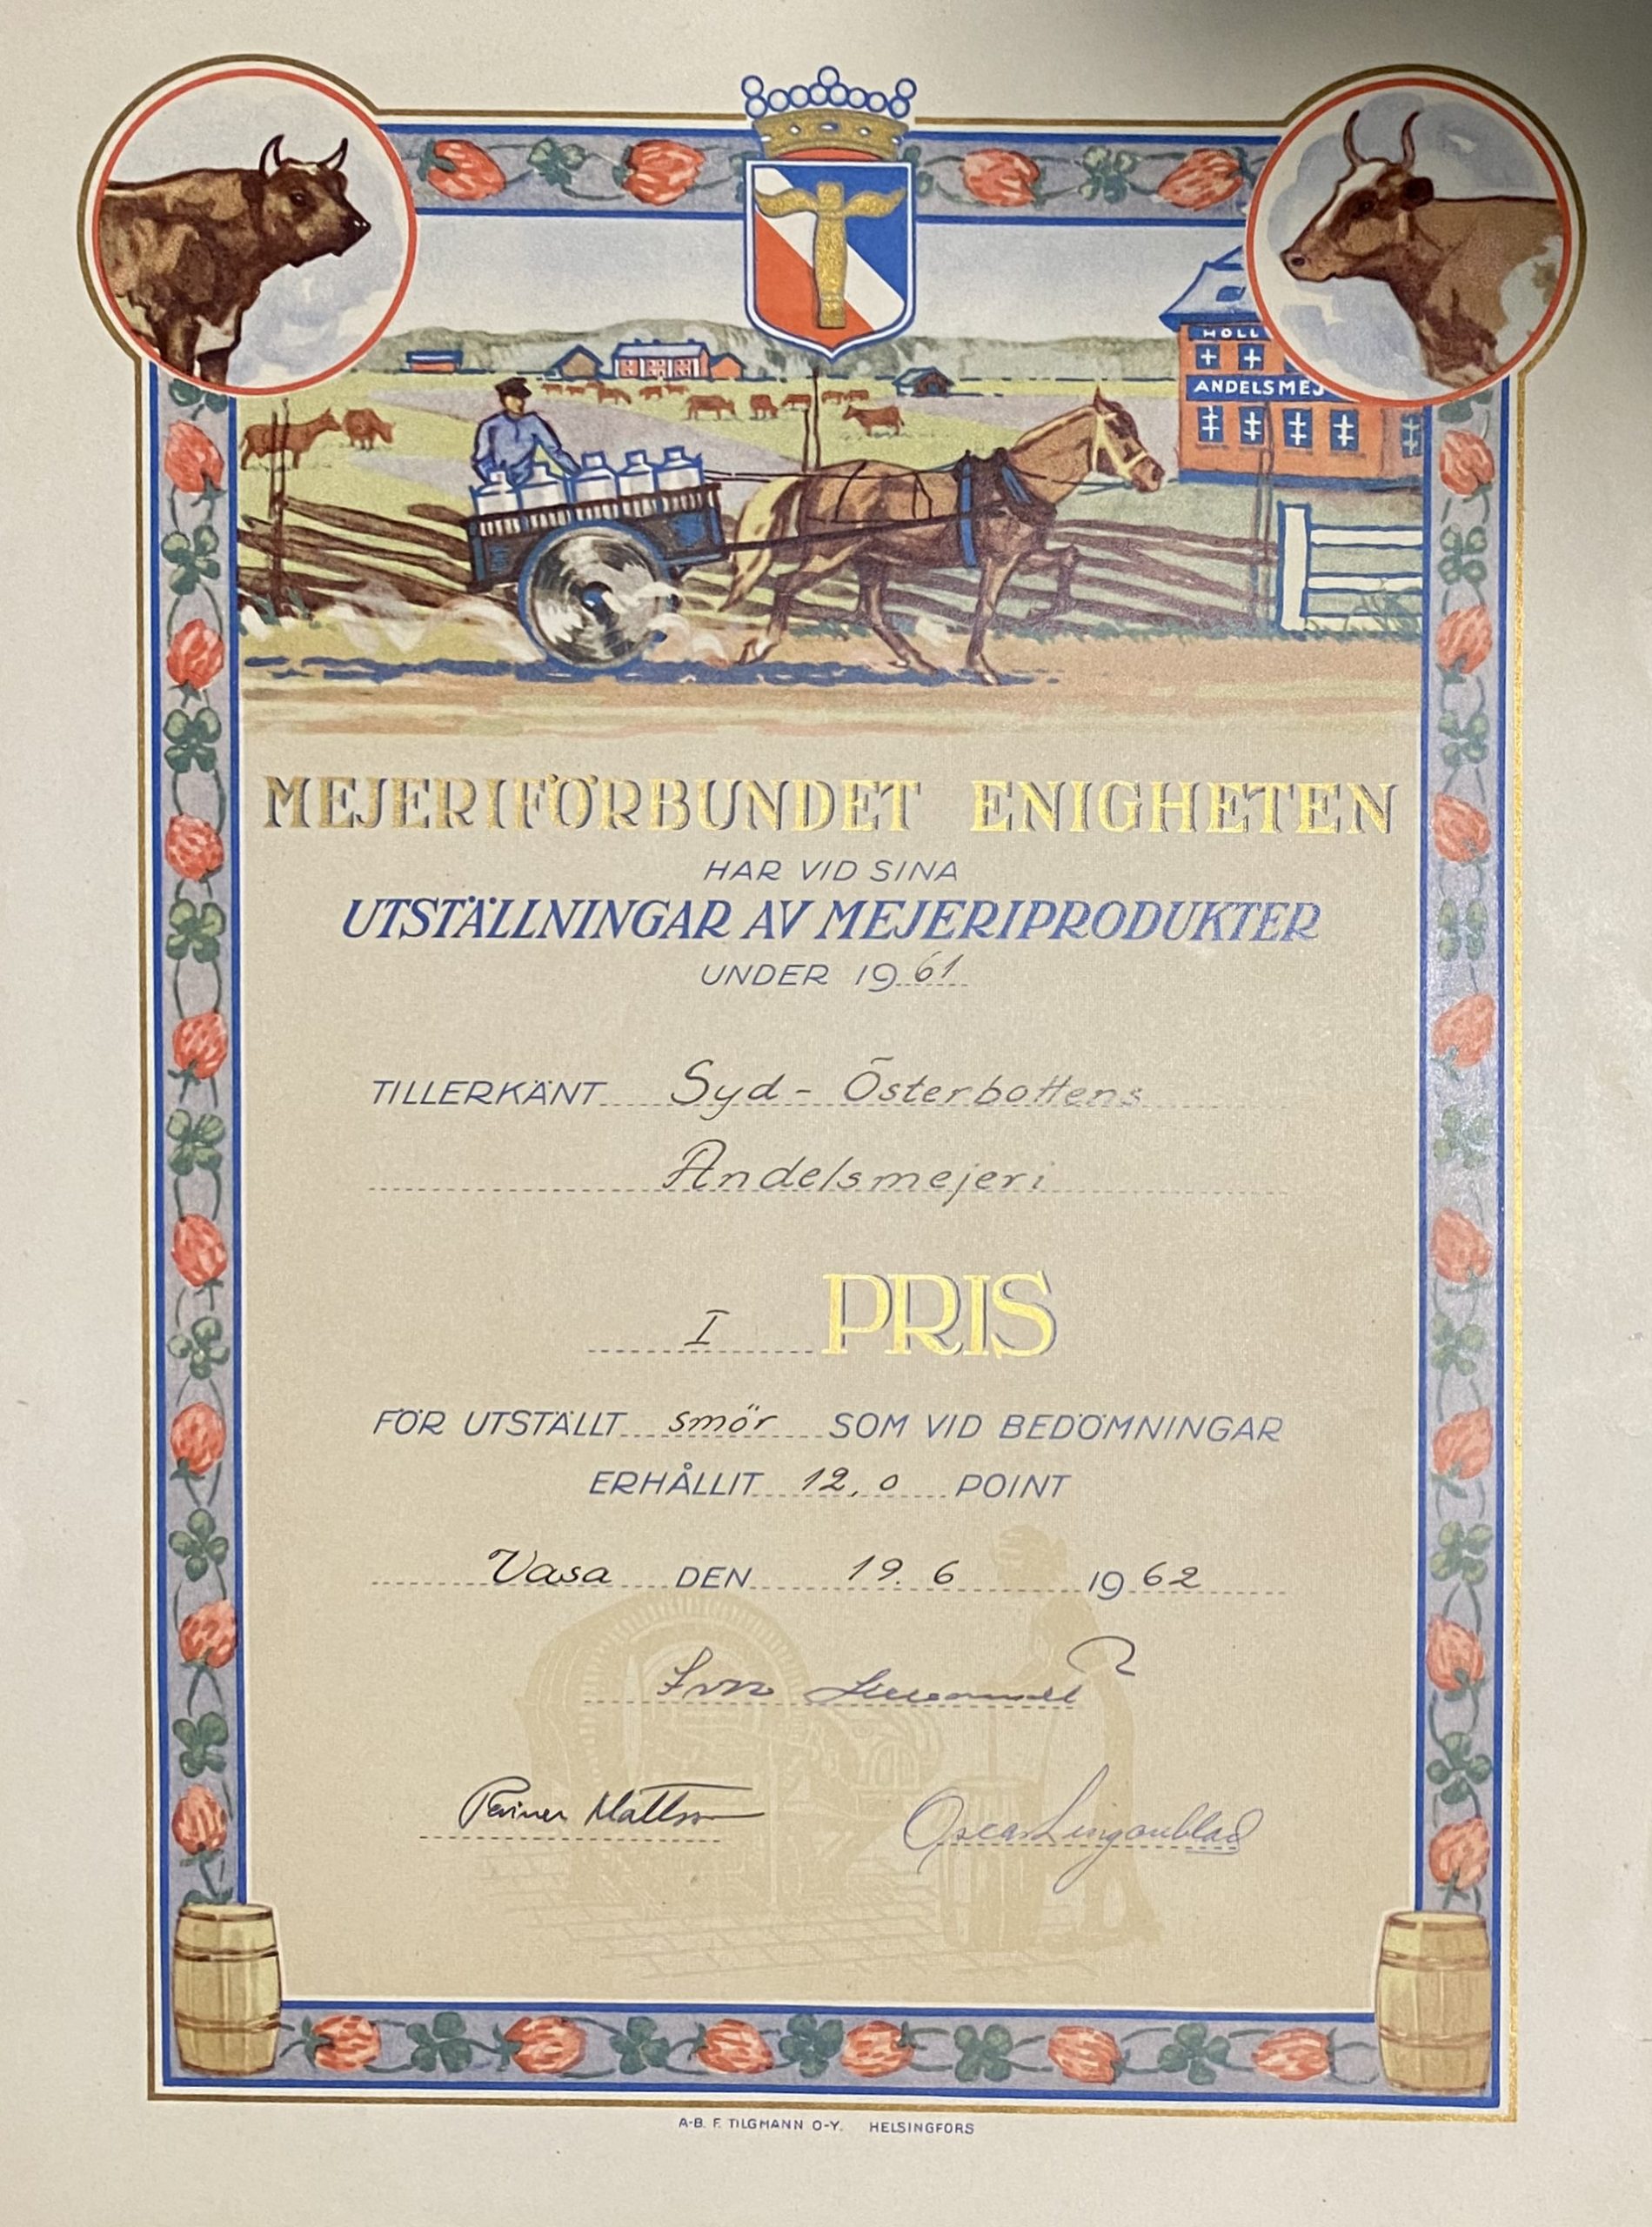 HOLL
ANDELSMEJ
MEJERIFÖRBUNDET ENIGHETEN
HAR VID SINA
UTSTÄLLNINGAR AV MEJERIPRODUKTER
UNDER 1961
TILLERKÄNT Syd-Österbottens
Andelsmejeri
I PRIS
FÖR UTSTÄLLT smör SOM VID BEDÖMNINGAR
ERHÅLLIT 12,0 POINT
Vasa DEN 19.6 1962
Rainer Mattsson Oscar Lingonblad
A-B. F. TILGMANN O-Y. HELSINGFORS